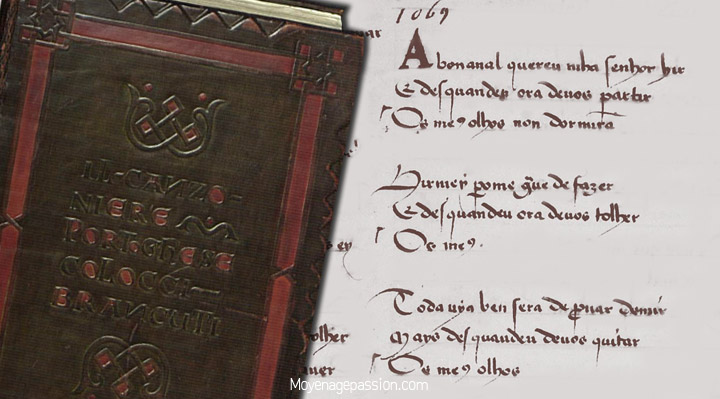 IL·CANZO-
NIERE
PORTOGHESE
COLOCCI-
BRANCUTI
1069
A bonanal quereu mha senhor hir
E desquandeu ora deuos partir
Os me9 olhos non dormira
Hirmey pome gue de fazer
E desquandeu ora deuos tolher
Os me9.
Toda uya ben sera de puar demir
Mays desquandeu deuos quitar
Os me9 olhos
ar
ey
tolher
uer
Moyenagepassion.com